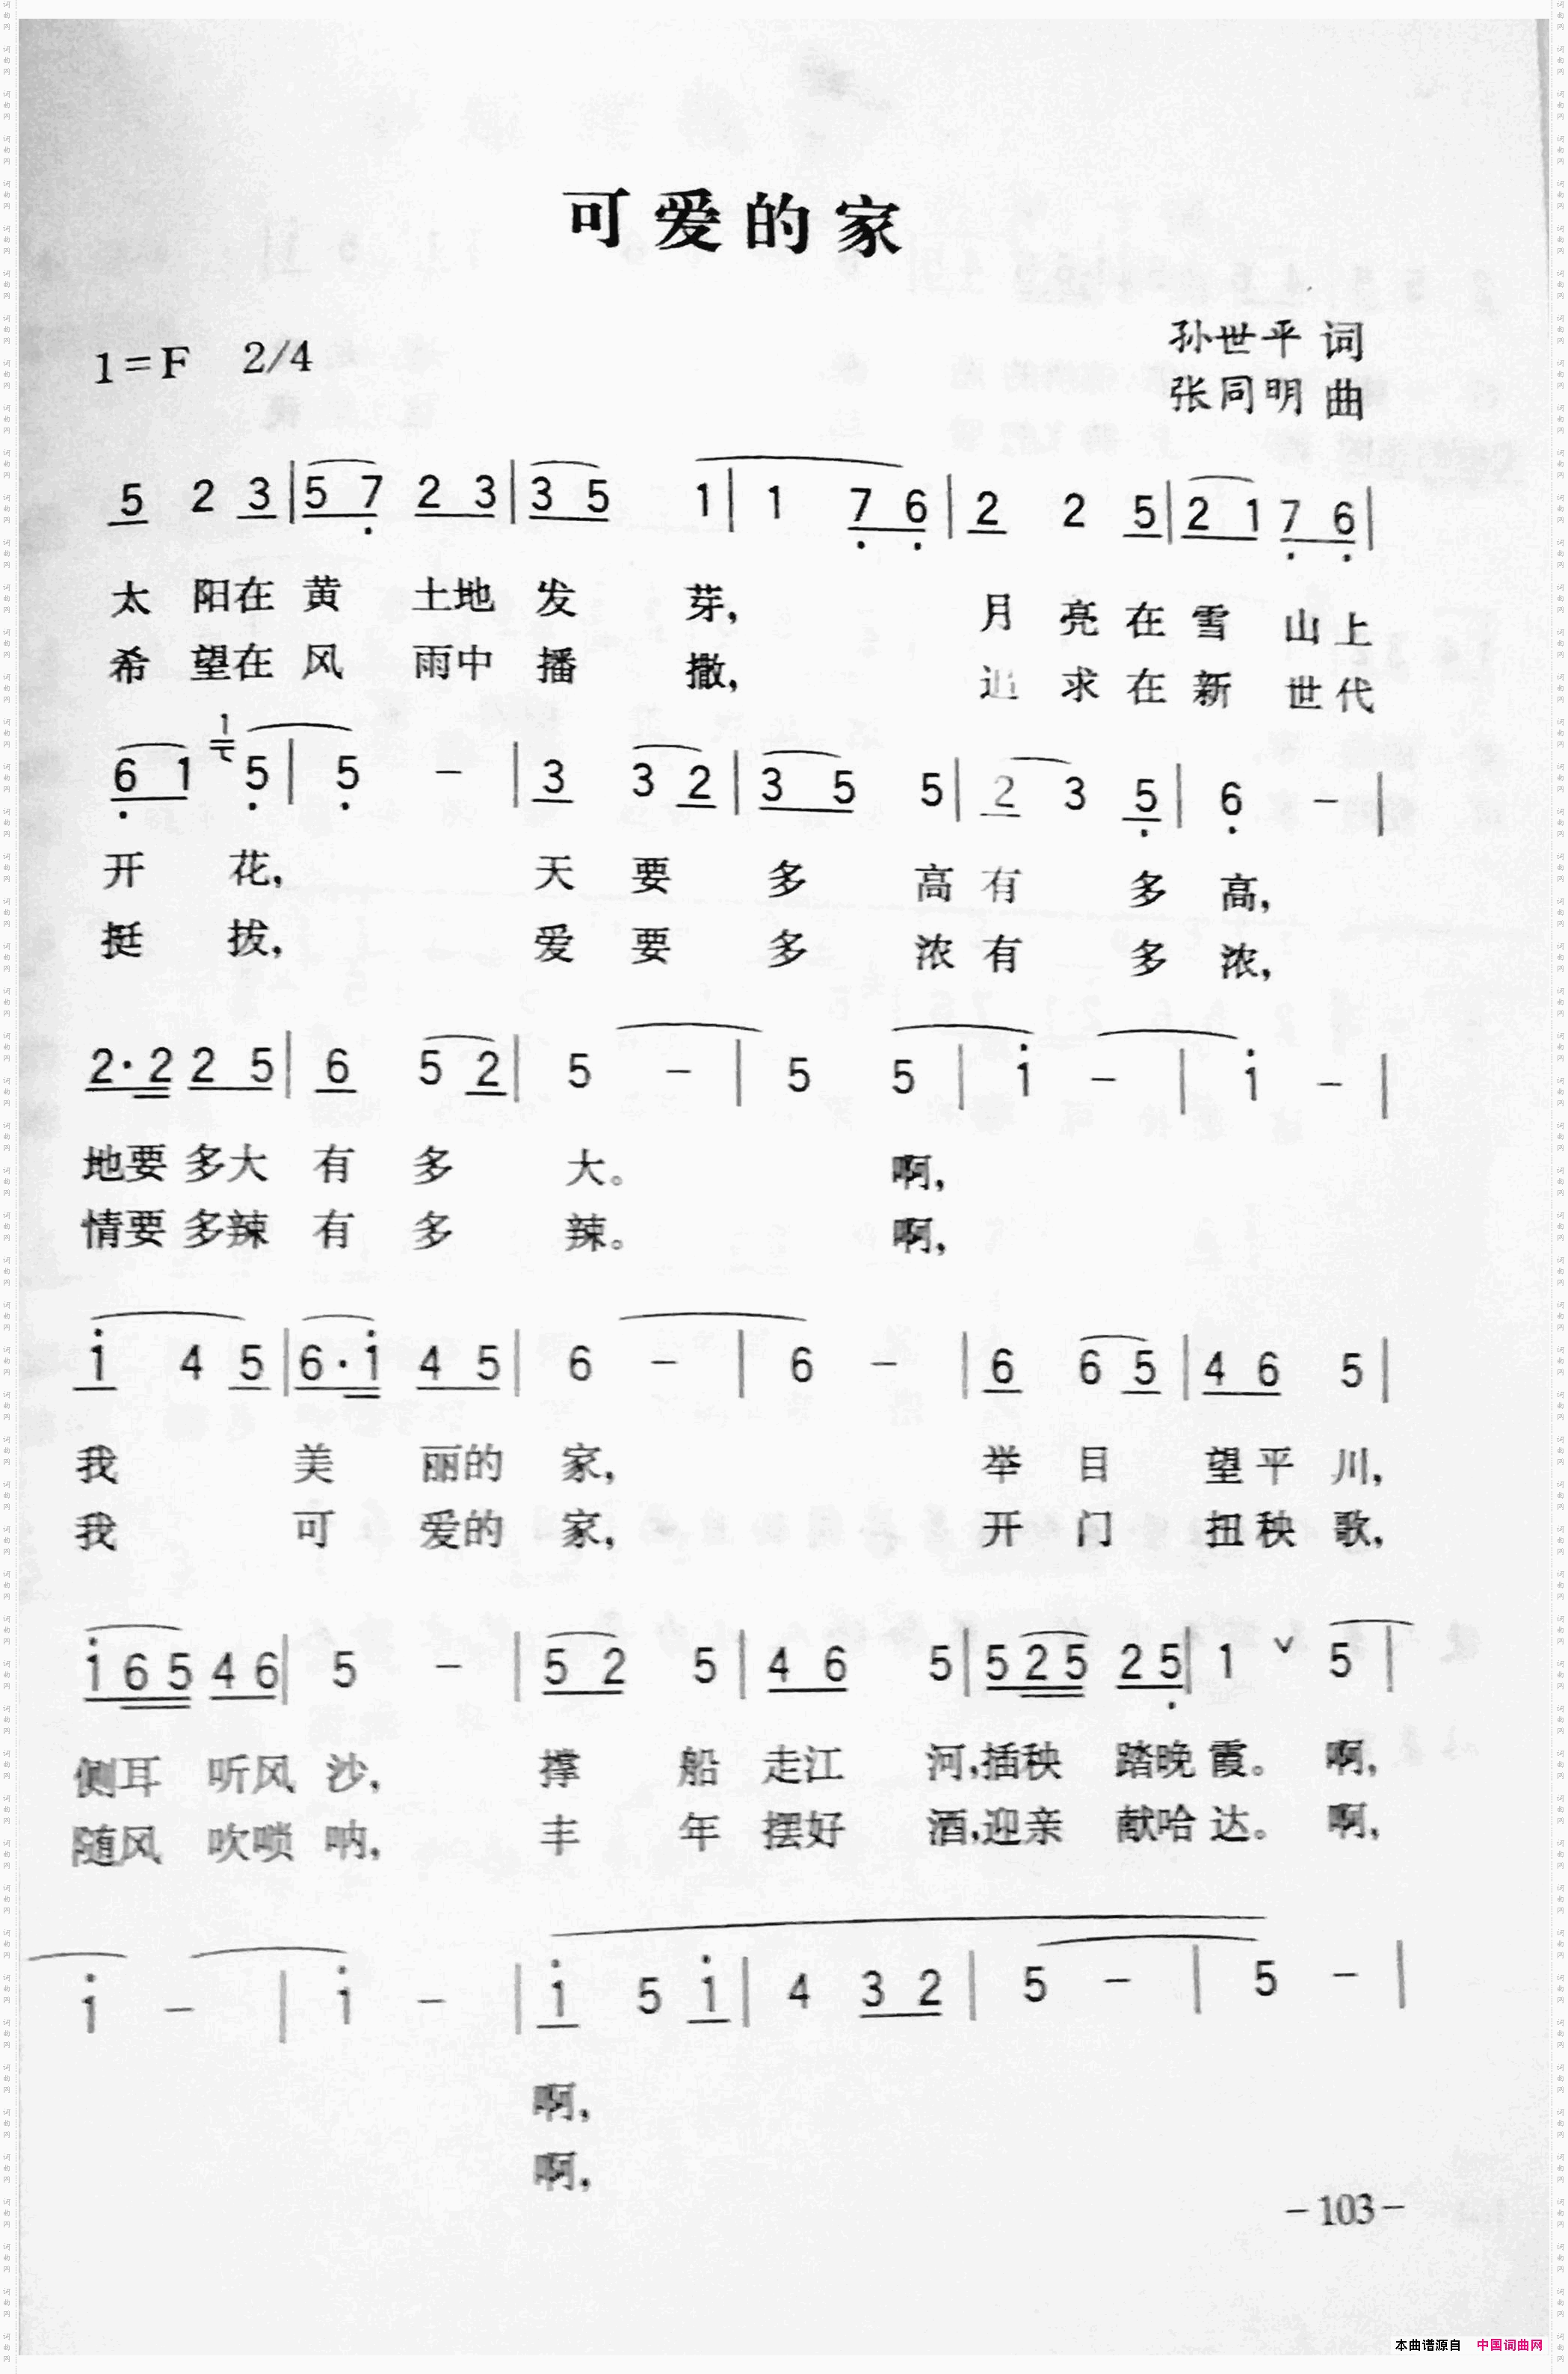 可爱的家
1=F 2/4
孙世平 词
张同明 曲
5 2 3 | 5 7 2 3 | 3 5 1 | 1 7 6 | 2 2 5 | 2 1 7 6 |
太 阳在 黄 土地 发 芽, 月 亮 在 雪 山 上
希 望在 风 雨中 播 撒, 追 求 在 新 世 代
6 1 5 | 5 - | 3 3 2 | 3 5 5 | 2 3 5 | 6 - |
开 花, 天 要 多 高 有 多 高,
挺 拔, 爱 要 多 浓 有 多 浓,
2·2 2 5 | 6 5 2 | 5 - | 5 5 | i - | i - |
地要 多大 有 多 大。 啊,
情要 多辣 有 多 辣。 啊,
i 4 5 | 6·i 4 5 | 6 - | 6 - | 6 6 5 | 4 6 5 |
我 美 丽的 家, 举 目 望 平 川,
我 可 爱的 家, 开 门 扭 秧 歌,
i 6 5 4 6 | 5 - | 5 2 5 | 4 6 5 | 5 2 5 2 5 | 1 ∨ 5 |
侧耳 听风 沙, 撑 船 走江 河,插秧 踏晚 霞。 啊,
随风 吹唢 呐, 丰 年 摆好 酒,迎亲 献哈 达。 啊,
i - | i - | i 5 i | 4 3 2 | 5 - | 5 - |
啊,
啊,
-103-
本曲谱源自 中国词曲网